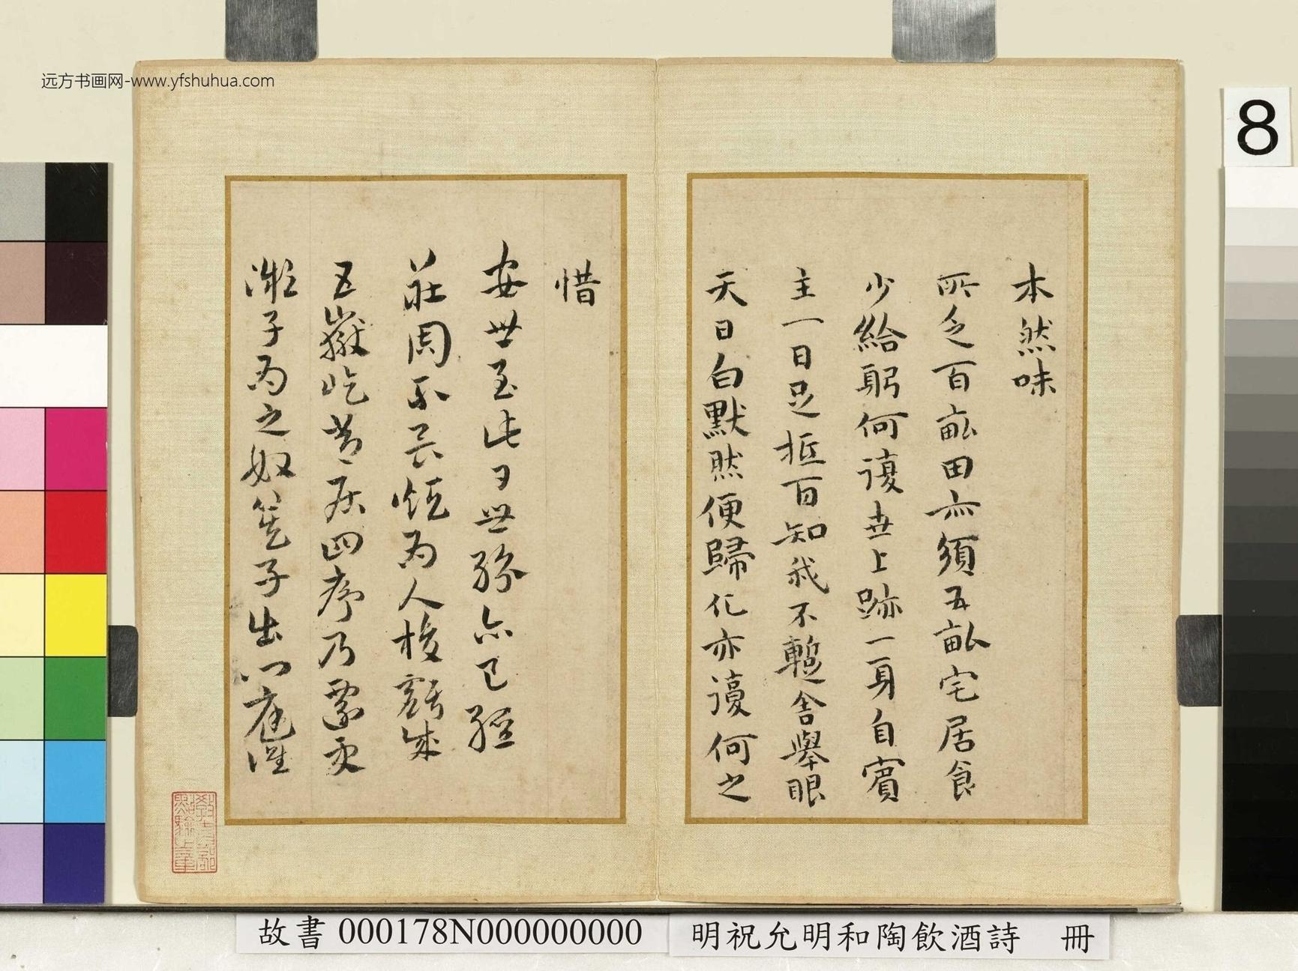 远方书画网-www.yfshuhua.com
8
本然味
所乏百畝田亦須五畝宅居食
少給躬何復世上跡一身自賓
主一日足抵百知我不暫舍舉眼
天日白默然便歸化亦復何之
惜
安世至此日世務亦已經
莊周不異恆為人梭成
五嶽屹苦居四序乃更
淵子為之奴籃子出門庭
教育部點驗之章
故書 000178N000000000
明祝允明和陶飲酒詩 冊